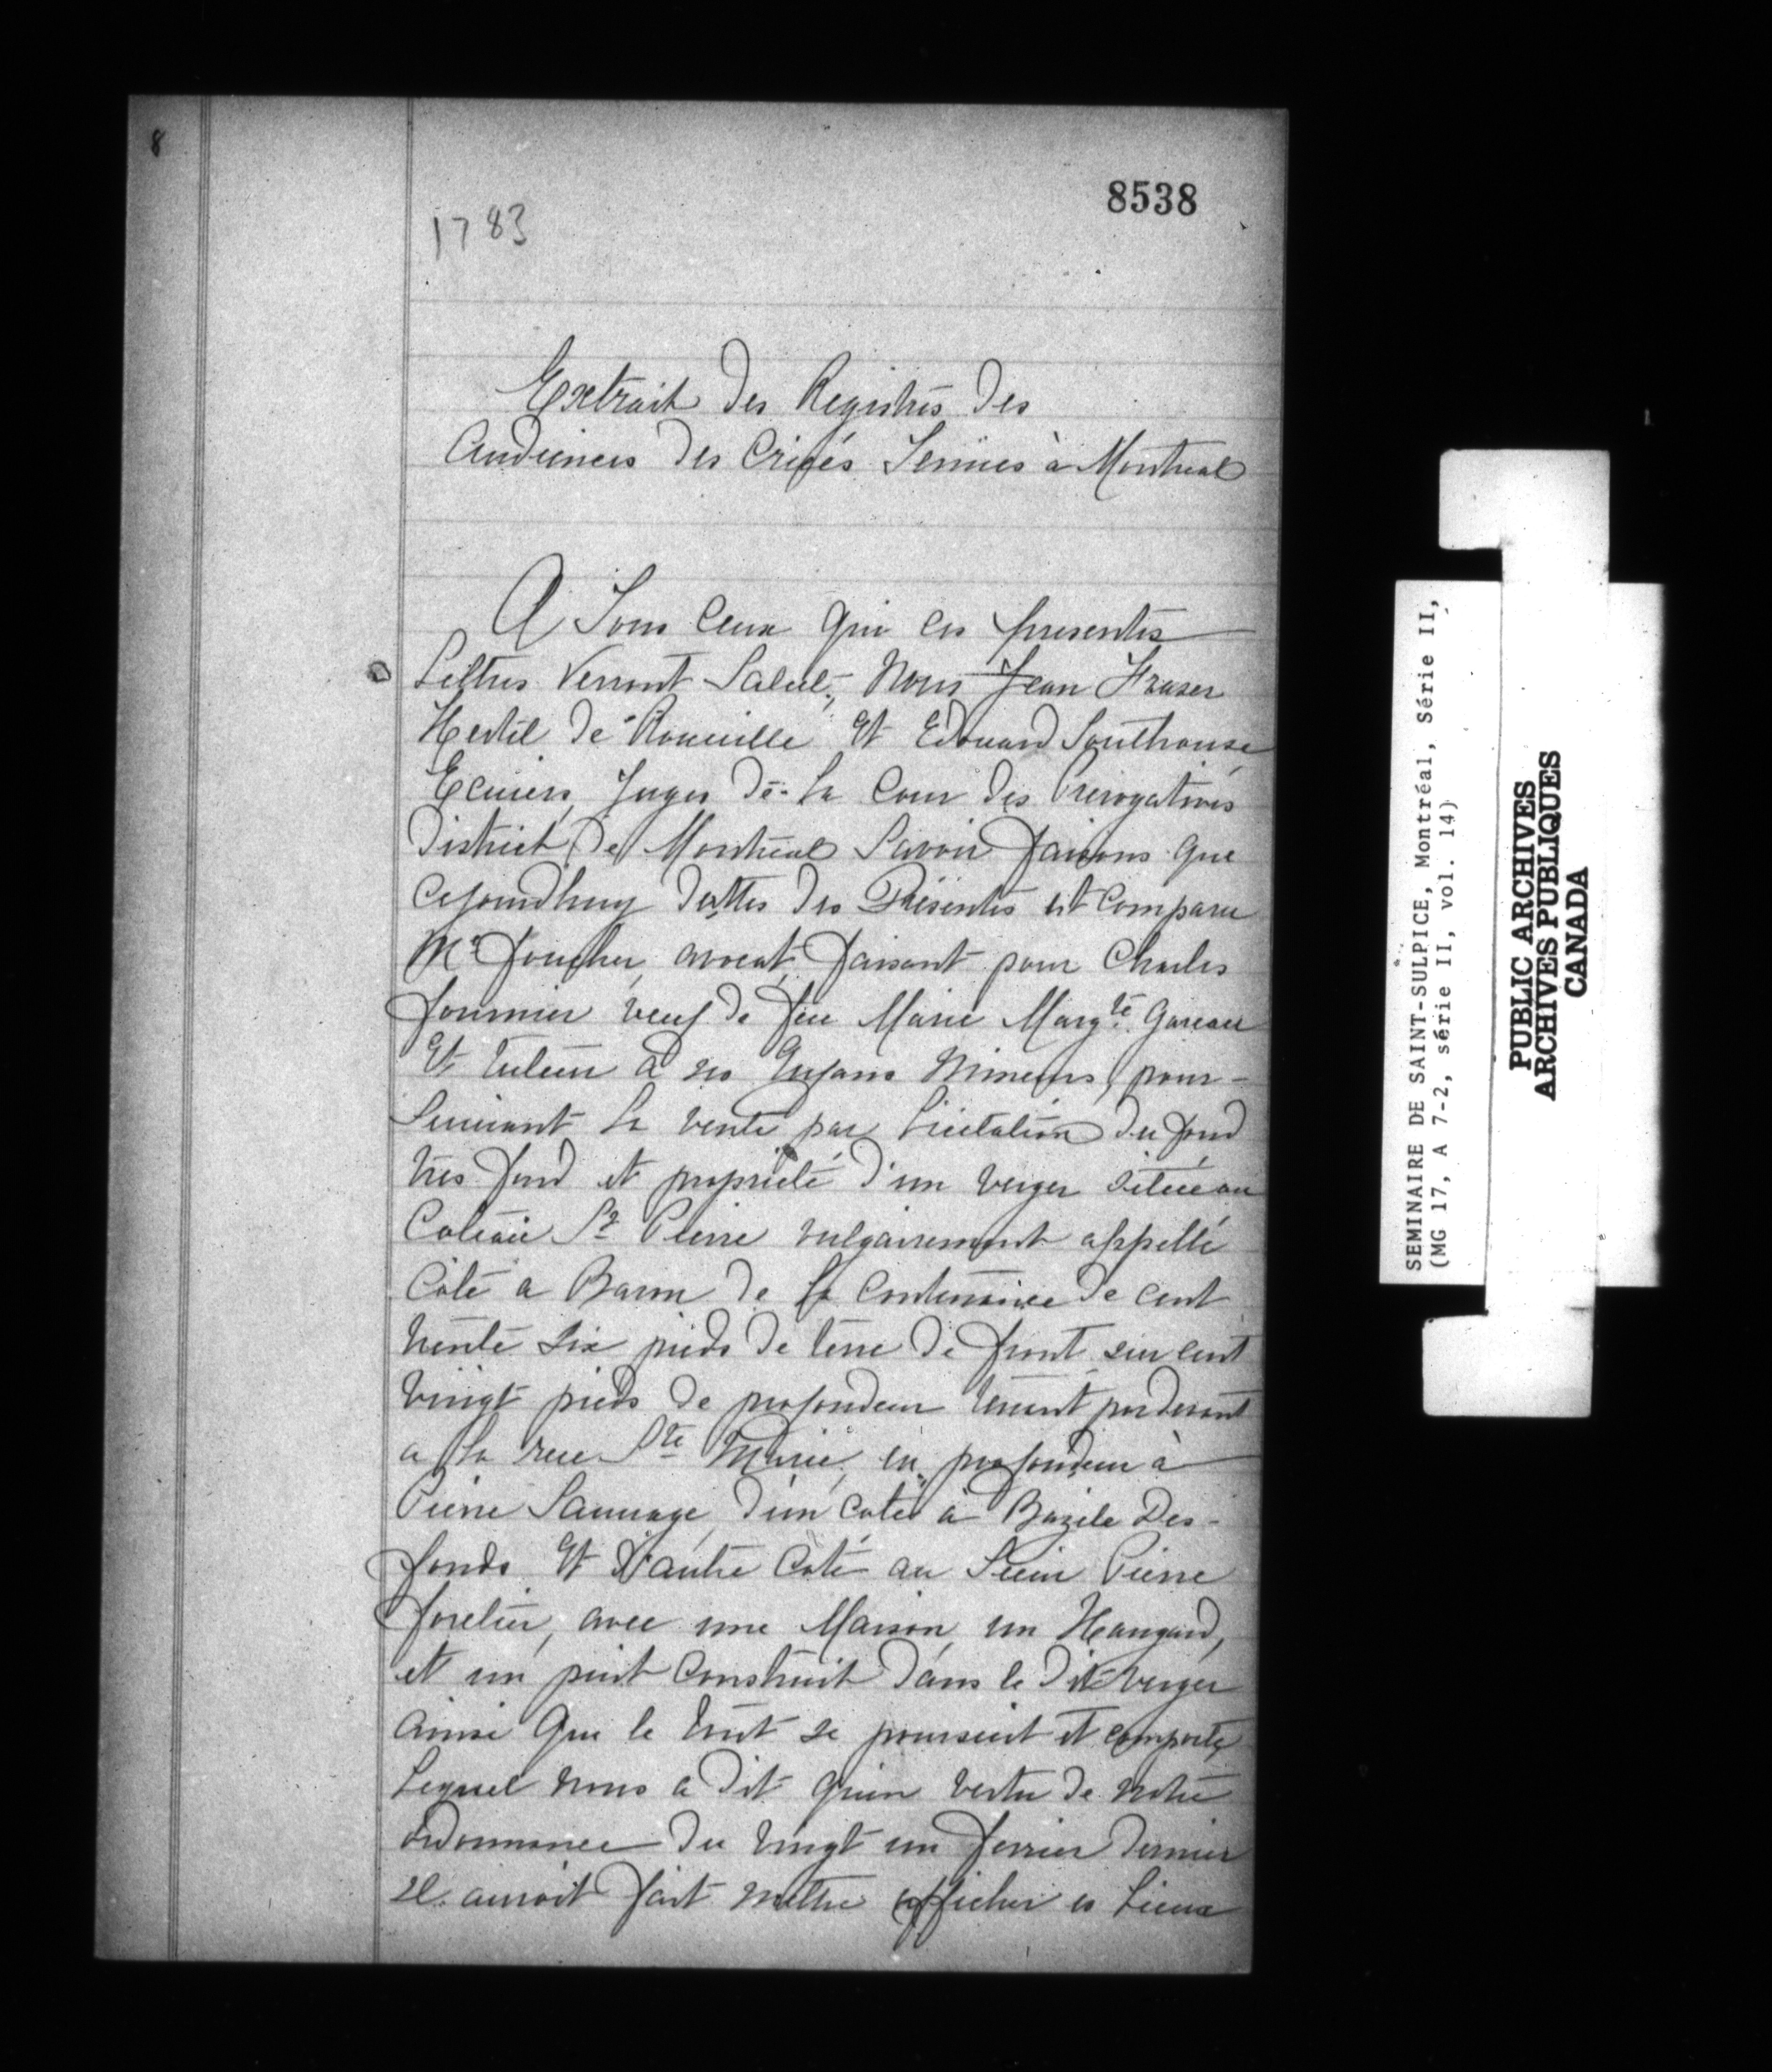 8
8538
1783
Extrait des Registres des
Audiences des Criées Tenues à Montreal
A Tous Ceux qui ces presentes
Lettres Verront Salut, Nous Jean Fraser
Hertel de Rouville Et Edouard Southouse
Ecuiers, Juges de la Cour des Prerogatives
District de Montreal Savoir faisons que
Cejourdhuy dattes des Présentes est Comparu
Me Foucher, avocat, faisant pour Charles
fournier veuf de feu Marie Margte Gareau
Et tuteur à ses Enfans Mineurs, pour-
Suivant la vente par Licitation du fond
tres fond et proprieté d'un verger situé au
Coteau St Pierre vulgairement appellé
Coté a Baron de la Contenance de cent
trente six pieds de terre de front sur cent
vingt pieds de profondeur tenant par devant
a la rue Ste Marie, en profondeur à
Pierre Sauvage, d'un coté à Bazile Des-
fonds Et d'autre Coté au Sieur Pierre
foretier, avec une Maison, un Hangard,
et un puit Construit dans le dit verger
Ainsi que le tout se poursuit et comporte,
Lequel nous a dit qu'en vertu de notre
ordonnance du vingt un fevrier dernier
il auroit fait mettre afficher es Lieux
SEMINAIRE DE SAINT-SULPICE, Montréal, Série II,
(MG 17, A 7-2, série II, vol. 14)
PUBLIC ARCHIVES
ARCHIVES PUBLIQUES
CANADA